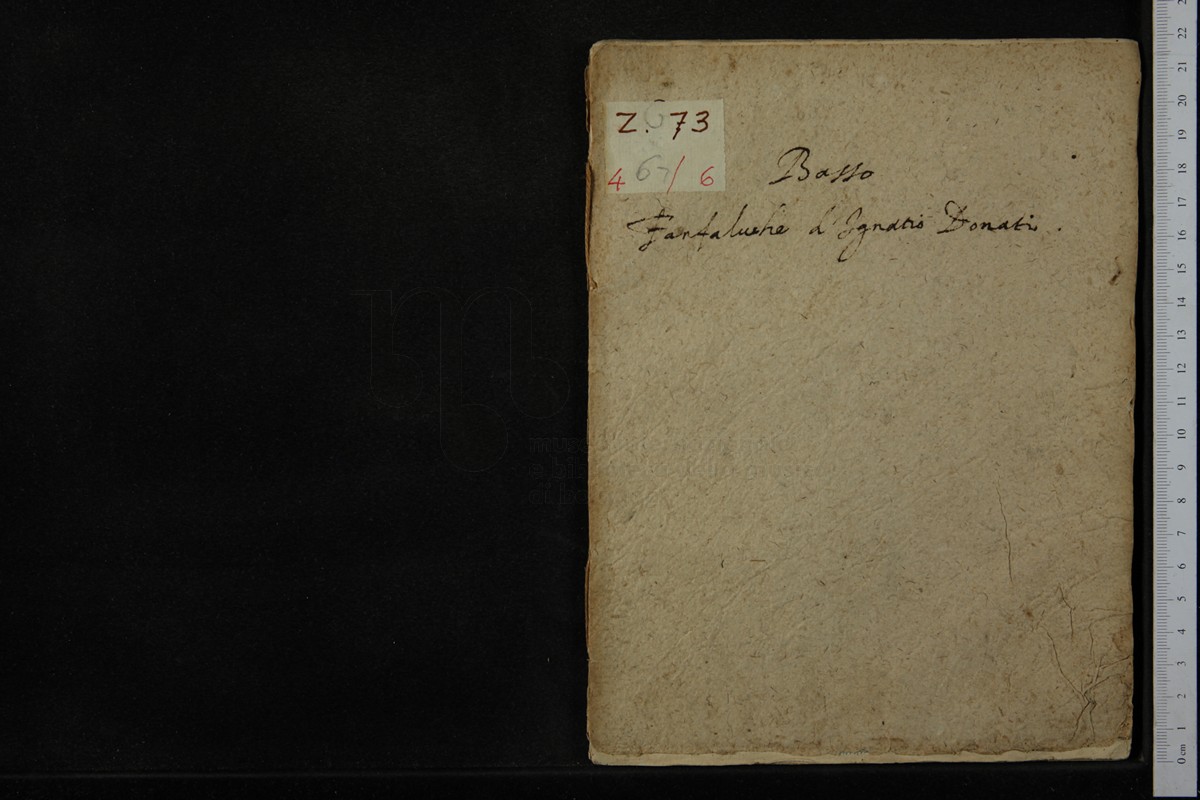 Z. 73
4 67/ 6
Basso
Fanfaluche d'Ignatio Donati.
22
21
20
19
18
17
16
15
14
13
12
11
10
9
8
7
6
5
4
3
2
1
0 cm